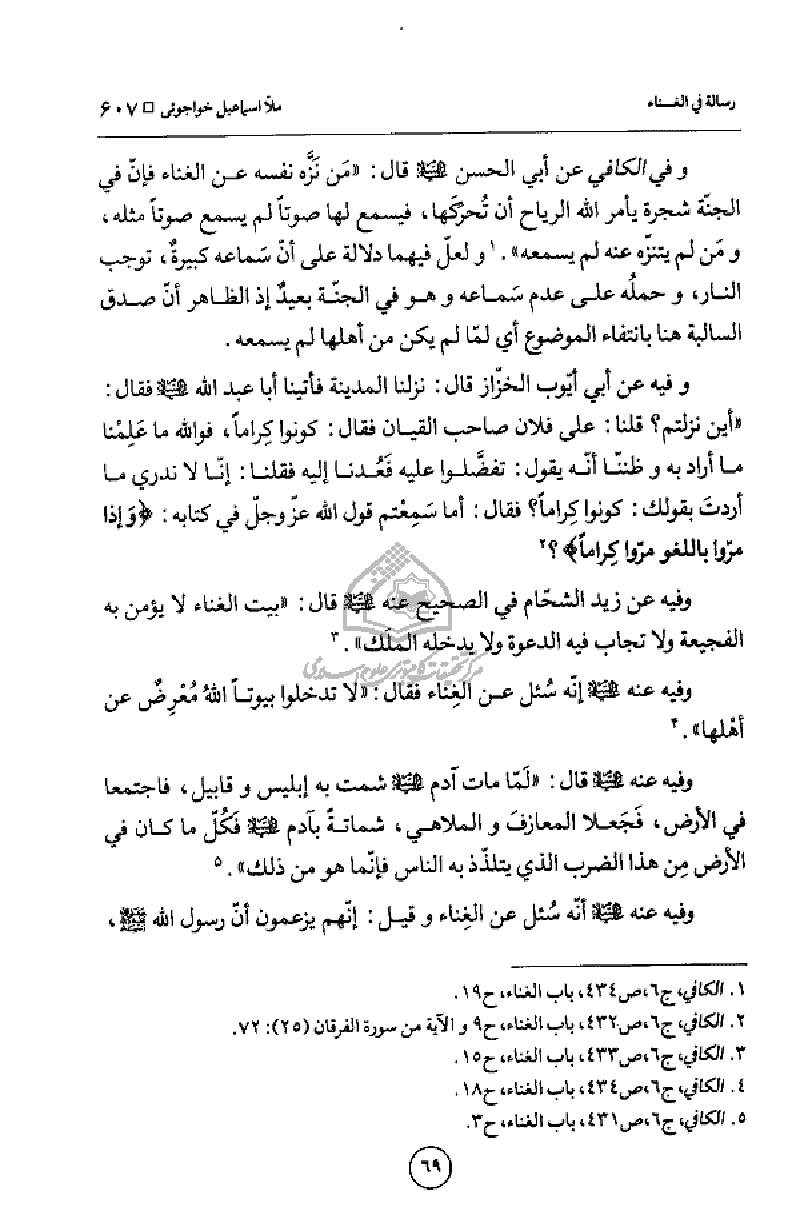 رسالة في الغـــناء
ملاّ اسماعيل خواجوئى □ ۶۰۷
و في الكافي عن أبي الحسن ﵇ قال: «مَن نَزَّه نفسه عـن الغناء فإنّ في
الجنّة شجرة يأمر الله الرياح أن تُحرّكَها، فيسمع لها صوتاً لم يسمع صوتاً مثله،
و مَن لم يتنزّه عنه لم يسمعه».١ و لعلّ فيهما دلالة على أنّ سَماعه كبيرةٌ، توجب
النـار، و حملُه علـى عدم سَمـاعه و هـو في الجنّـة بعيدٌ إذ الظـاهر أنّ صـدق
السالبة هنا بانتفاء الموضوع أي لمّا لم يكن من أهلها لم يسمعه.
و فيه عن أبي أيّوب الخزّاز قال: نزلنا المدينة فأتينا أبا عبد الله ﵇ فقال:
«أين نزلتم؟ قلنا: على فلان صاحب القيـان فقال: كونوا كِراماً، فوالله ما عَلِمْنا
مـا أراد به و ظننّـا أنّـه يقول: تفضَّلـوا عليه فَعُدنـا إليه فقلنـا: إنّـا لا نـدري مـا
أردتَ بقولك: كونوا كِراماً؟ فقال: أما سَمِعْتم قول الله عزّ وجلّ في كتابه: ﴿وَ إذا
مرّوا باللغو مرّوا كِراماً﴾؟٢
وفيه عن زيد الشحّام في الصحيح عنه ﵇ قال: «بيت الغناء لا يؤمن به
الفجيعة ولا تجاب فيه الدعوة ولا يدخله المَلَك».٣
وفيه عنه ﵇ إنّه سُئل عـن الغِناء فقال: «لا تدخلوا بيوتـاً اللهُ مُعْرِضٌ عن
أهْلها».۴
وفيه عنه ﵇ قال: «لَمّا مات آدم ﵇ شمت به إبليس و قابيل، فاجتمعا
في الأرض، فَجَعـلا المعازفَ و الملاهي، شماتةً بآدم ﵇ فَكُلّ ما كـان في
الأرض مِن هذا الضرب الذي يتلذّذ به الناس فإنّما هو من ذلك».۵
وفيه عنه ﵇ أنّه سُئل عن الغِناء و قيـل: إنّهم يزعمون أنّ رسول الله ﷺ،
مركز تحقيقات كامپيوترى علوم اسلامى
١. الكافي، ج٦، ص٤٣٤، باب الغناء، ح١٩.
٢. الكافي، ج٦، ص٤٣٢، باب الغناء، ح٩ و الآية من سورة الفرقان (٢٥): ٧٢.
٣. الكافي، ج٦، ص٤٣٣، باب الغناء، ح١٥.
٤. الكافي، ج٦، ص٤٣٤، باب الغناء، ح١٨.
٥. الكافي، ج٦، ص٤٣١، باب الغناء، ح٣.
٦٩